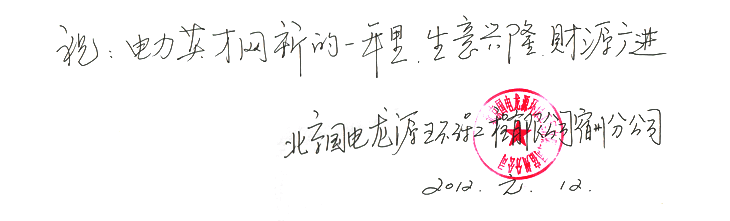 祝：电力英才网新的一年里，生意兴隆，财源广进
北京国电龙源环保工程有限公司宿州分公司
2012.元.12.